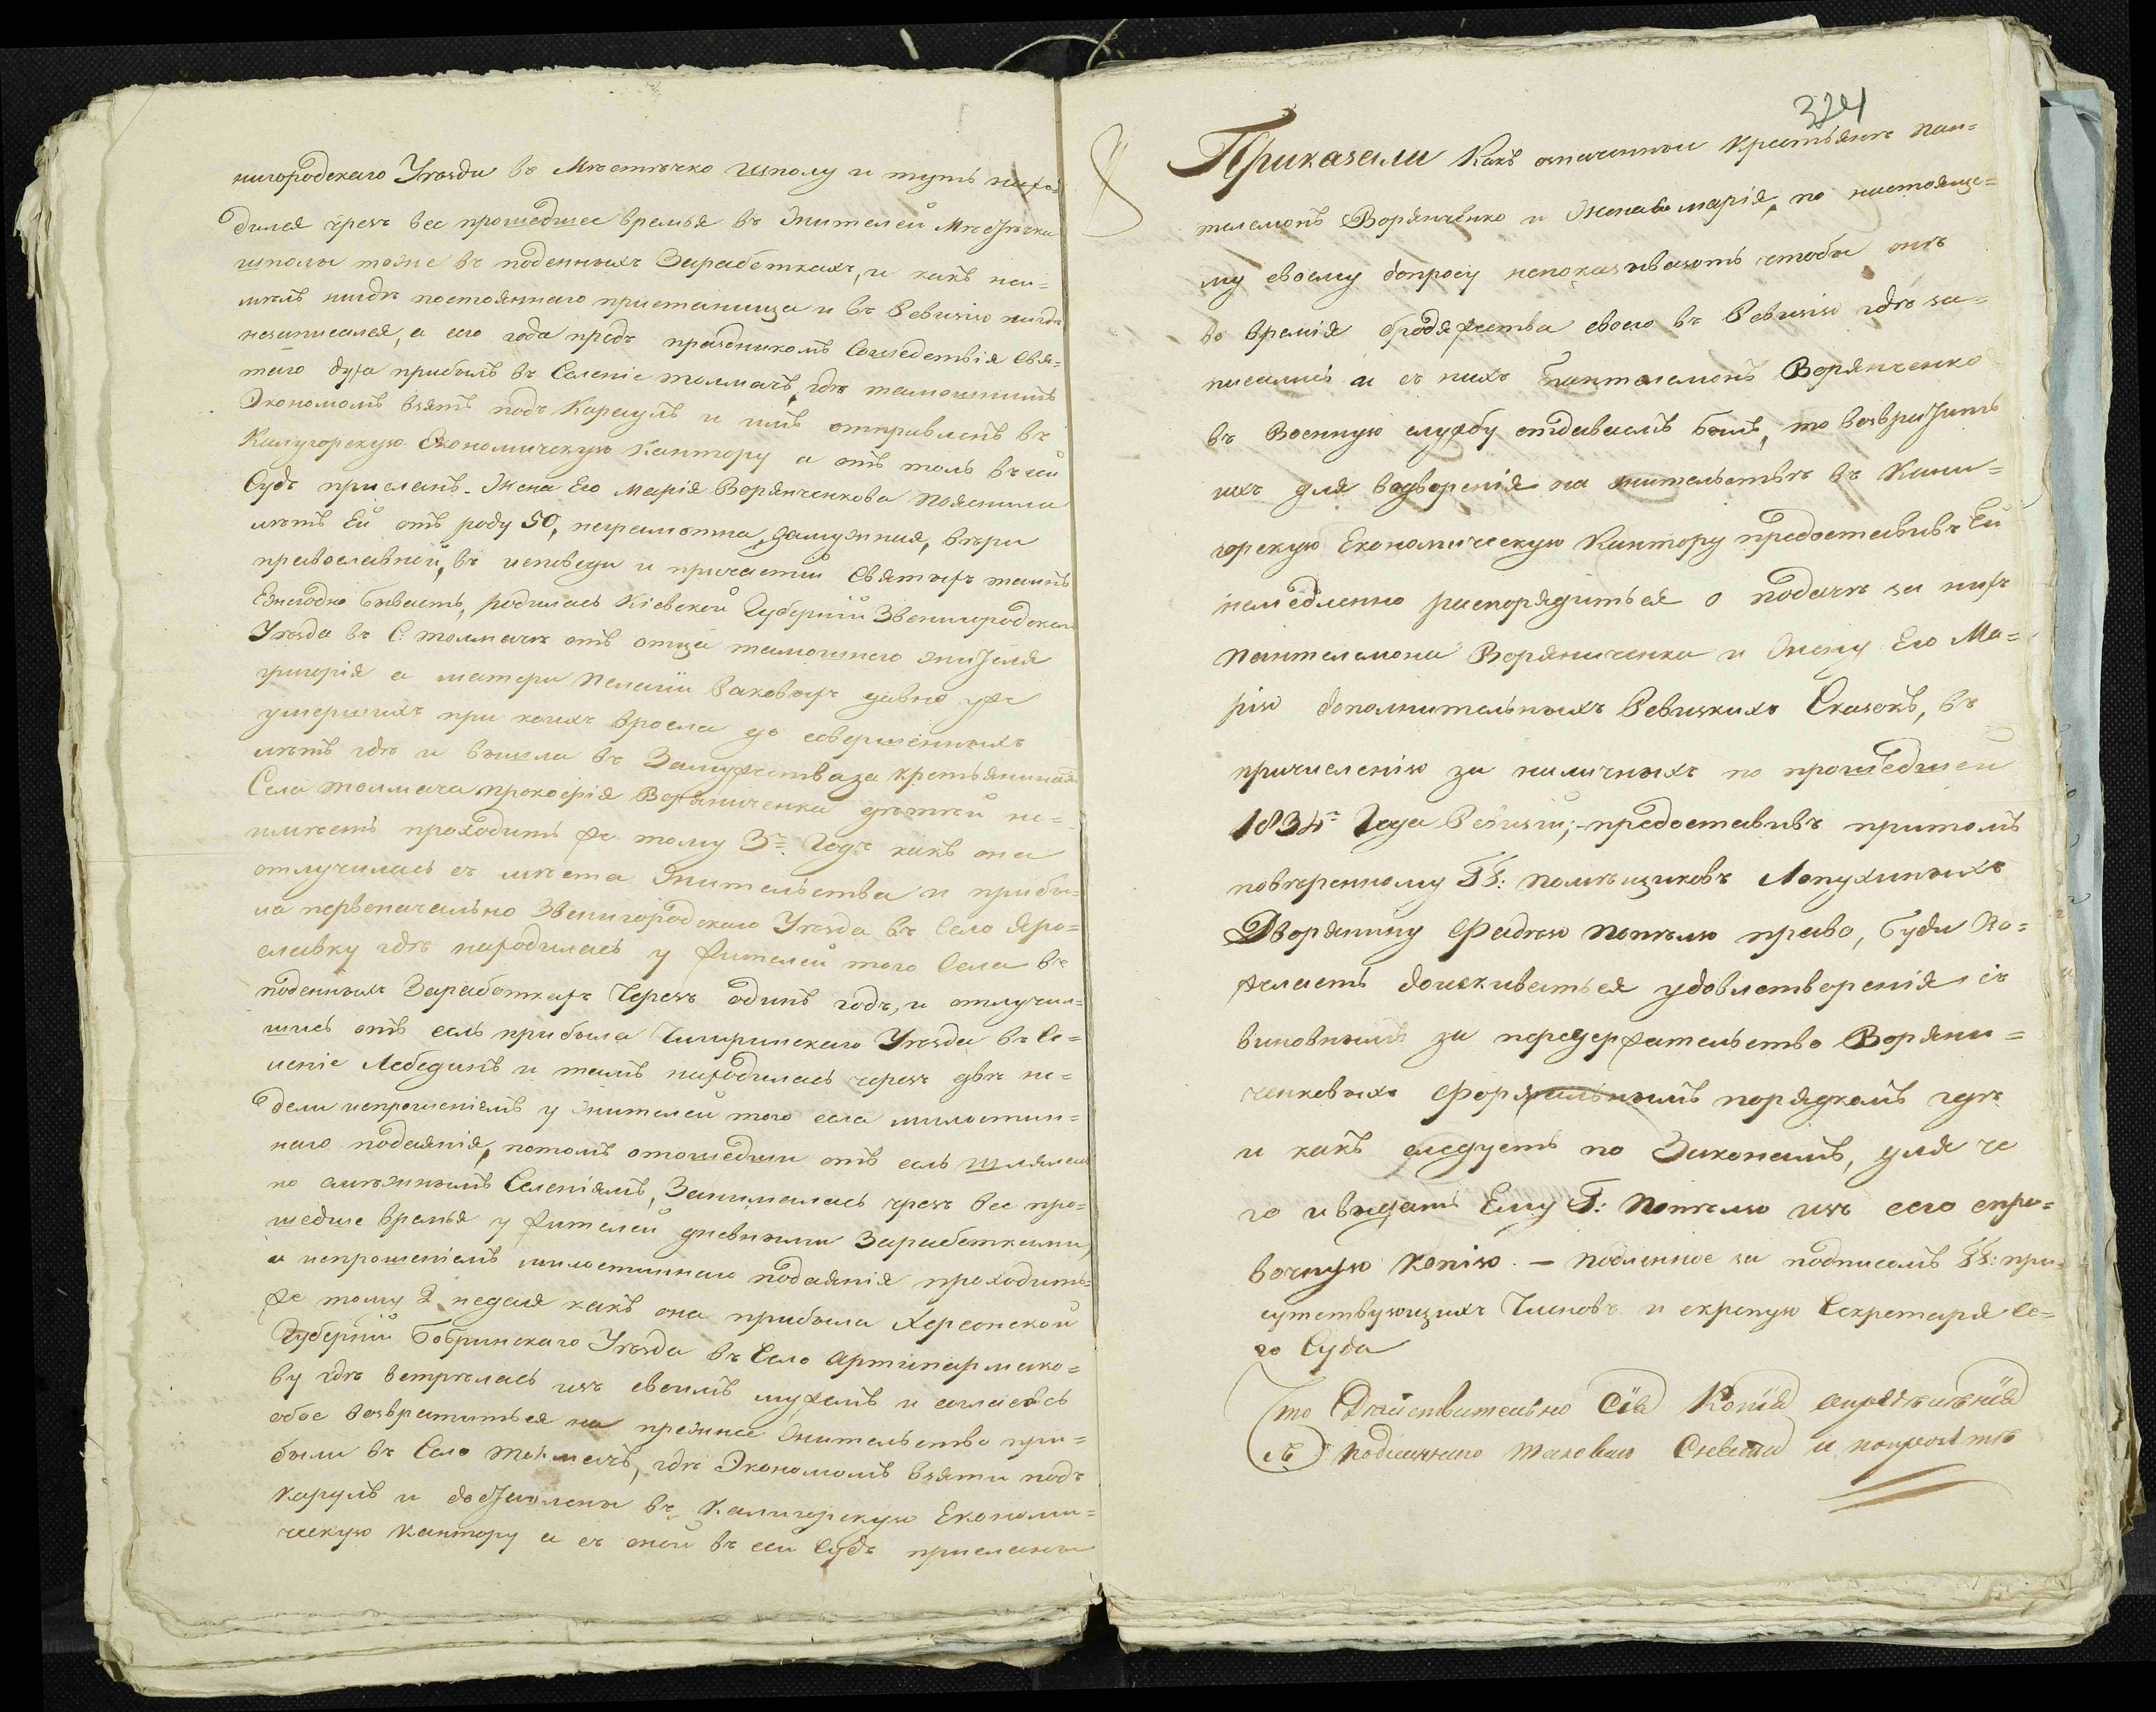 нигородскаго Уѣзда въ Мѣстѣчко Шполу и тутъ нахо=
дился чрезъ все прошедшее времья въ Жителей Мѣстѣчка
шполы тоже въ поденныхъ Заработкахъ, и какъ неи=
мѣлъ нигдѣ постояннаго пристанища и въ Ревизію нигдѣ
незаписался, а сего года предъ праздникомъ Сошедствія Свя=
таго духа прибылъ въ Селеніе толмачъ, где тамошнимъ
Экономомъ взятъ подъ Караулъ и имъ отправленъ въ
Калугорскую Економическую Кантору а отъ толь въ сей
Судъ присланъ. Жена Его Марія Ворянченкова Пояснила
лѣтъ Ей отъ роду 50, неграмотна, замужняя, вѣры
православной, въ исповеди и причастий Святыхъ таинъ
Ежегодно бываетъ, родилась Кіевской Губерній Звенигородскаго
Уѣзда въ С: толмачѣ отъ отца тамошнего жителя
григорія а матери Пелагіи Ваковыхъ давно уже
умершихъ при коихъ вросла до совершенныхъ
лѣтъ где и вышла въ Замужество за крестьянина
Села толмача прокофія Воряниченка детей не=
имѣетъ проходитъ же тому 3й. Годъ какъ она
отлучилась съ мѣста Жительства и прибы=
ла первоначально Звенигородскаго Уѣзда въ Село Яро=
славку гдѣ находилась у жителей того Села въ
поденныхъ Заработкахъ Чрезъ одинъ годъ, и отлучив=
шись отъ соль прибыла Чигиринскаго Уѣзда въ Се=
леніе Лебединъ и тамъ находилась чрезъ двѣ не=
дели испрошеніемъ у жителей того села милостин=
наго подаянія, потомъ отошедши отъ соль шлялась
по смѣжнымъ Селеніямъ, Занималась чрезъ все про=
шедше времья у жителей дневными Заработками,
и испрошеніемъ милостиннаго подаянія проходитъ=
же тому 2 неделя какъ она прибыла Херсонской
Губерній Бобринскаго Уѣзда въ Село
ву гдѣ встрѣлась изъ своимъ мужемъ и согласясь
обое возвратиться на прежнее Жительство при=
были въ Село Толмачъ, гдѣ Экономомъ взяти подъ
караулъ и доставлены въ Калигорскую Економи=
ческую Кантору а съ оной въ сей Судъ присланы
324
Приказали Какъ означенные Крестьяне пан=
телемонъ Ворянченко и Жена Его марія, по настояще=
му своему допросу непоказываютъ чтобы онѣ
во времія бродяжества своего въ Ревизію гдѣ за=
писались и съ нихъ Пантелемонъ Ворянченко
въ Военную службу отдаваемъ былъ, то возвратить
ихъ для водворенія на жительствѣ въ Кали=
горскую Економическую Кантору предоставивъ Ей
немедленно распорядиться о подачѣ за нихъ
Пантелемона Воряниченка и Жену Его Ма=
рію дополнительныхъ Ревизкихъ Сказокъ, въ
причисленію за наличныхъ по прошедшей
1834й Года Ревизіи; предоставивъ притомъ
повѣренному ГГ: помѣщиковъ Лопухиныхъ
Дворянину Фадѣю Попѣлю право, буди По=
желаетъ доискиваться удовлетворенія съ
виновныхъ за передержательство Воряни=
ченковыхъ Формальнымъ порядкомъ гдѣ
и какъ следуетъ по Законамъ, для че
го и выдать Ему Г: Попѣлю изъ сего спра=
вочную Копію. — Подлинное за подписомъ ГГ: при=
сутствующихъ Членовъ и скрепую Секретаря Се=
го Суда
Что Дѣйствительно Сія Копія
съ подлиннаго